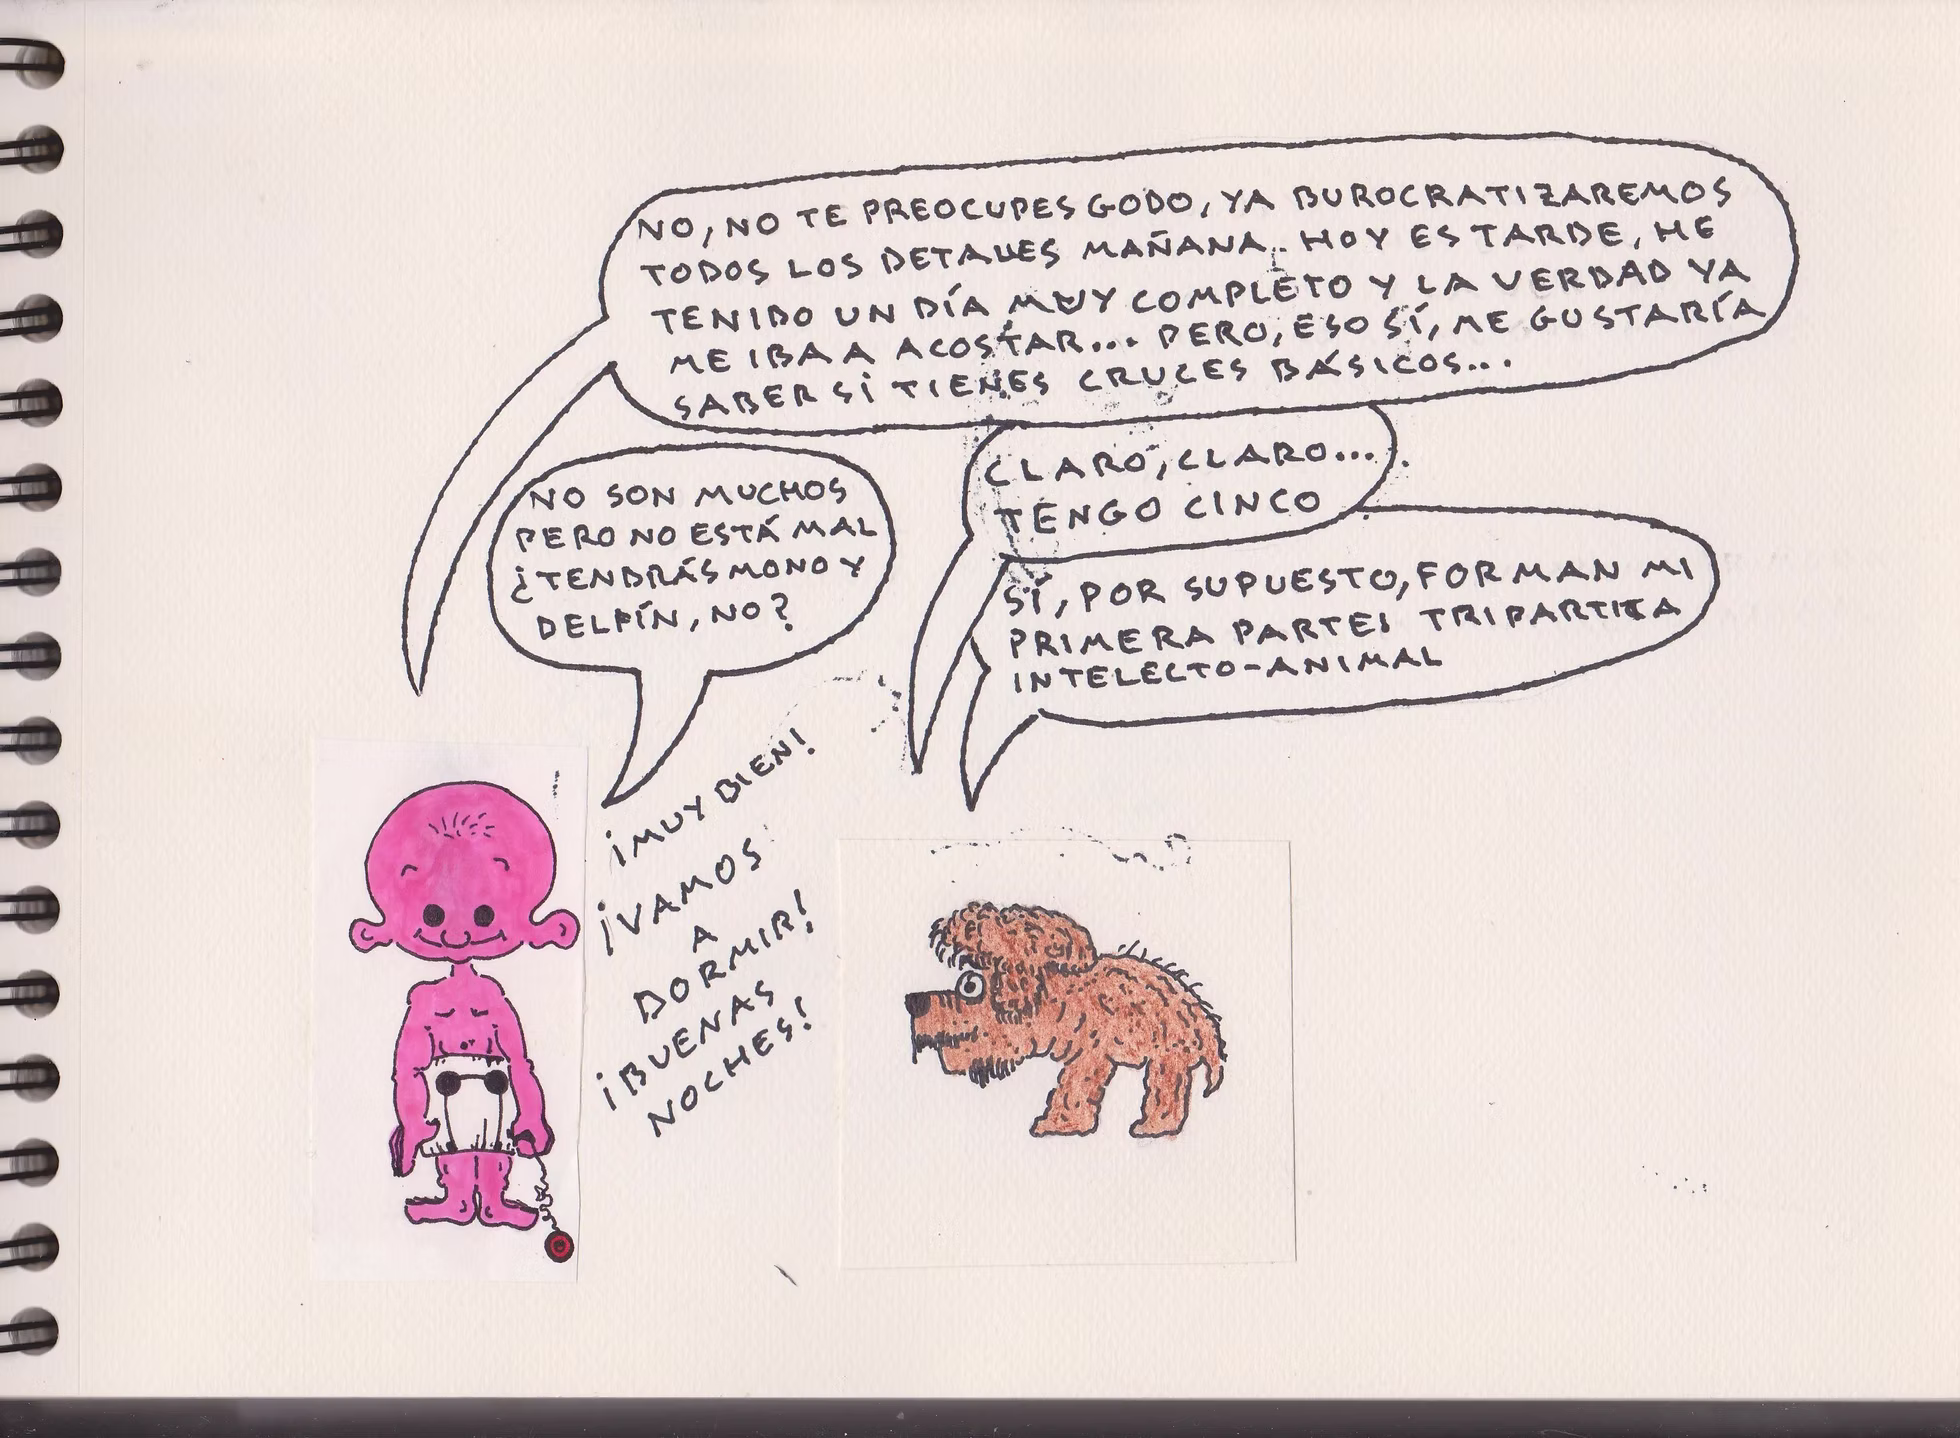 NO, NO TE PREOCUPES GODO, YA BUROCRATIZAREMOS
TODOS LOS DETALLES MAÑANA.. HOY ES TARDE, HE
TENIDO UN DÍA MUY COMPLETO Y LA VERDAD YA
ME IBA A ACOSTAR... PERO, ESO SÍ, ME GUSTARÍA
SABER SI TIENES CRUCES BÁSICOS...
CLARO, CLARO...
TENGO CINCO
NO SON MUCHOS
PERO NO ESTÁ MAL
¿TENDRÁS MONO Y
DELFÍN, NO?
SÍ, POR SUPUESTO, FORMAN MI
PRIMERA PARTE TRIPARTITA
INTELECTO-ANIMAL
¡MUY BIEN!
¡VAMOS
A
DORMIR!
¡BUENAS
NOCHES!